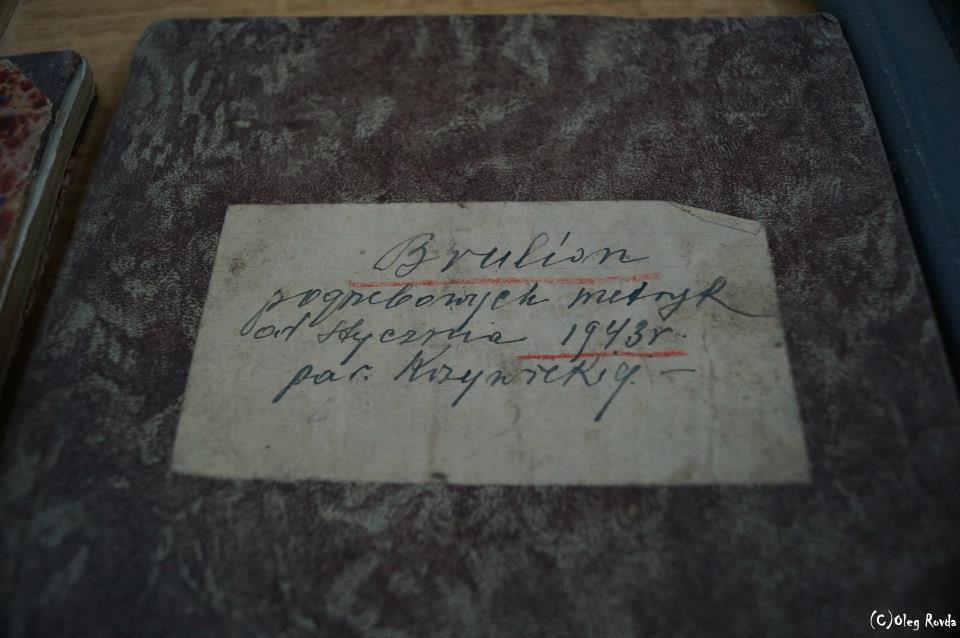 Brulion
pogrzebowych metryk
od stycznia 1943 r.
par. Krzywickiej. —
(C)Oleg Rovda